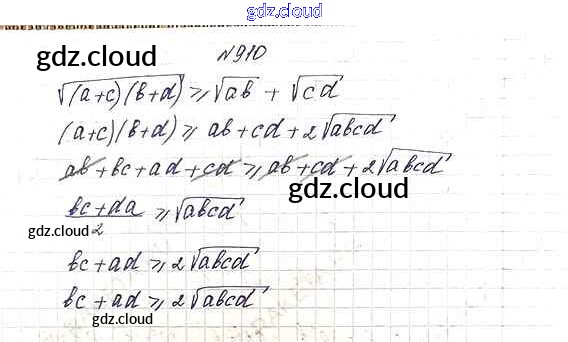 gdz.cloud
gdz.cloud
№910
√(a+c)(b+d) ⩾ √ab + √cd
(a+c)(b+d) ⩾ ab+cd+2√abcd
ab+bc+ad+cd ⩾ ab+cd+2√abcd
gdz.cloud
bc+da/2 ⩾ √abcd
gdz.cloud
bc+ad ⩾ 2√abcd
bc+ad ⩾ 2√abcd
gdz.cloud